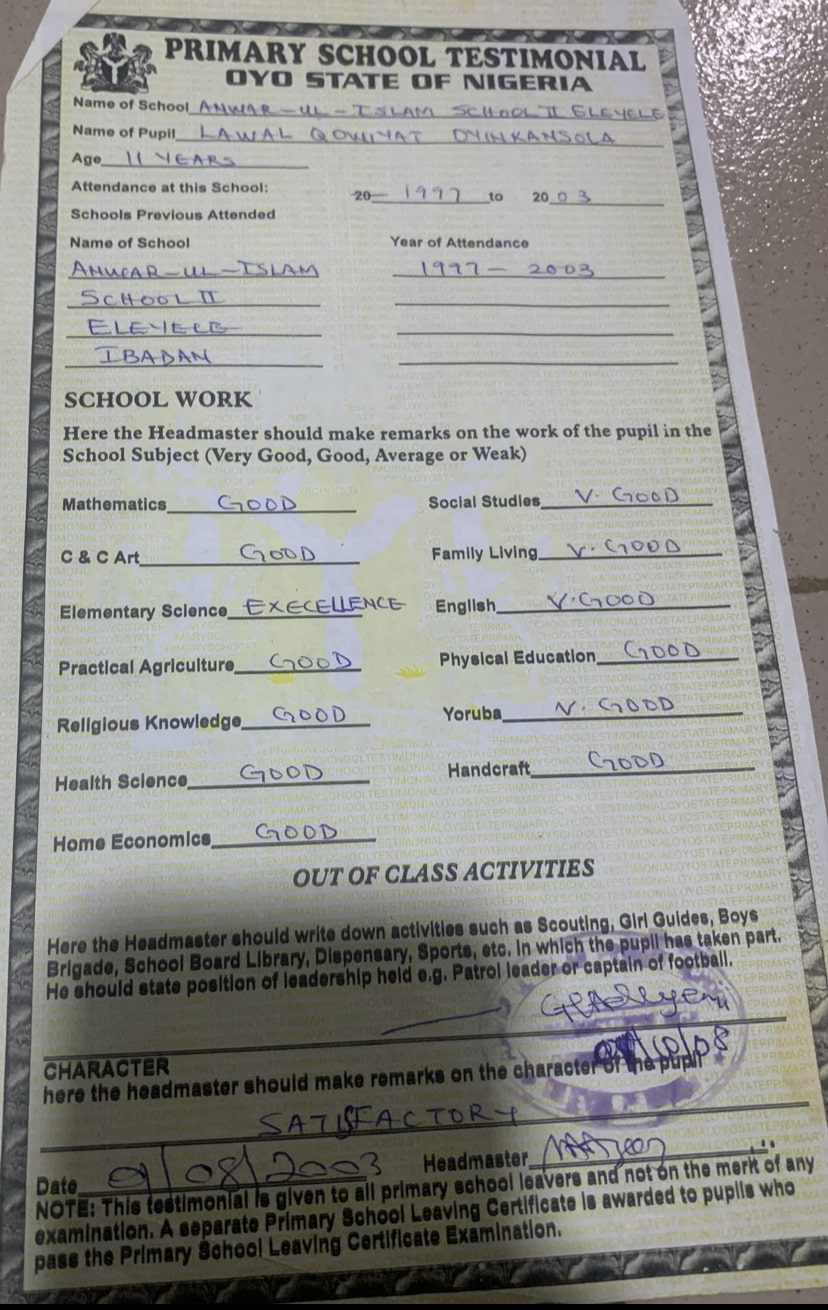 PRIMARY SCHOOL TESTIMONIAL
OYO STATE OF NIGERIA
Name of School ANWAR-UL-ISLAM SCHOOL II ELEYELE
Name of Pupil LAWAL QOWIYAT OYINKANSOLA
Age 11 YEARS
Attendance at this School: 20 1997 to 20 03
Schools Previous Attended
Name of School Year of Attendance
ANWAR-UL-ISLAM 1997 - 2003
SCHOOL II
ELEYELE
IBADAN
SCHOOL WORK
Here the Headmaster should make remarks on the work of the pupil in the
School Subject (Very Good, Good, Average or Weak)
Mathematics GOOD Social Studies V. GOOD
C & C Art GOOD Family Living V. GOOD
Elementary Science EXECELLENCE English V. GOOD
Practical Agriculture GOOD Physical Education GOOD
Religious Knowledge GOOD Yoruba V. GOOD
Health Science GOOD Handcraft GOOD
Home Economics GOOD
OUT OF CLASS ACTIVITIES
Here the Headmaster should write down activities such as Scouting, Girl Guides, Boys
Brigade, School Board Library, Dispensary, Sports, etc. in which the pupil has taken part.
He should state position of leadership held e.g. Patrol leader or captain of football.
CHARACTER
here the headmaster should make remarks on the character of the pupil
SATISFACTORY
Date 01/08/2003 Headmaster
NOTE: This testimonial is given to all primary school leavers and not on the merit of any
examination. A separate Primary School Leaving Certificate is awarded to pupils who
pass the Primary School Leaving Certificate Examination.